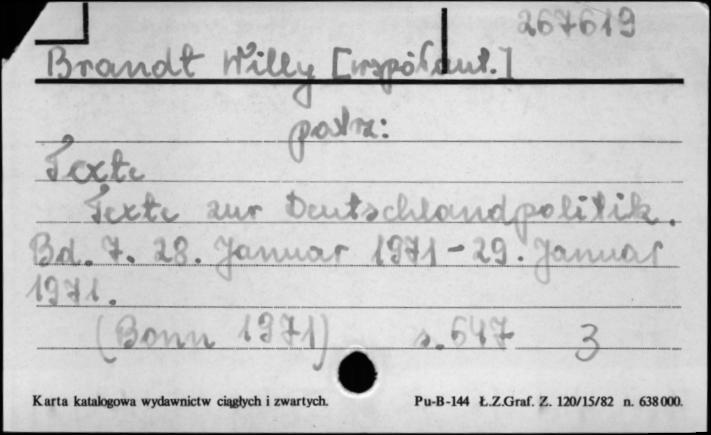 267619
Brandt Willy [współaut.]
patrz:
Texte
Texte zur Deutschlandpolitik.
Bd. 7. 28. Januar 1971 - 29. Januar
1971.
(Bonn 1971) s. 647 3
Karta katalogowa wydawnictw ciągłych i zwartych. Pu-B-144 Ł.Z.Graf. Z. 120/15/82 n. 638000.